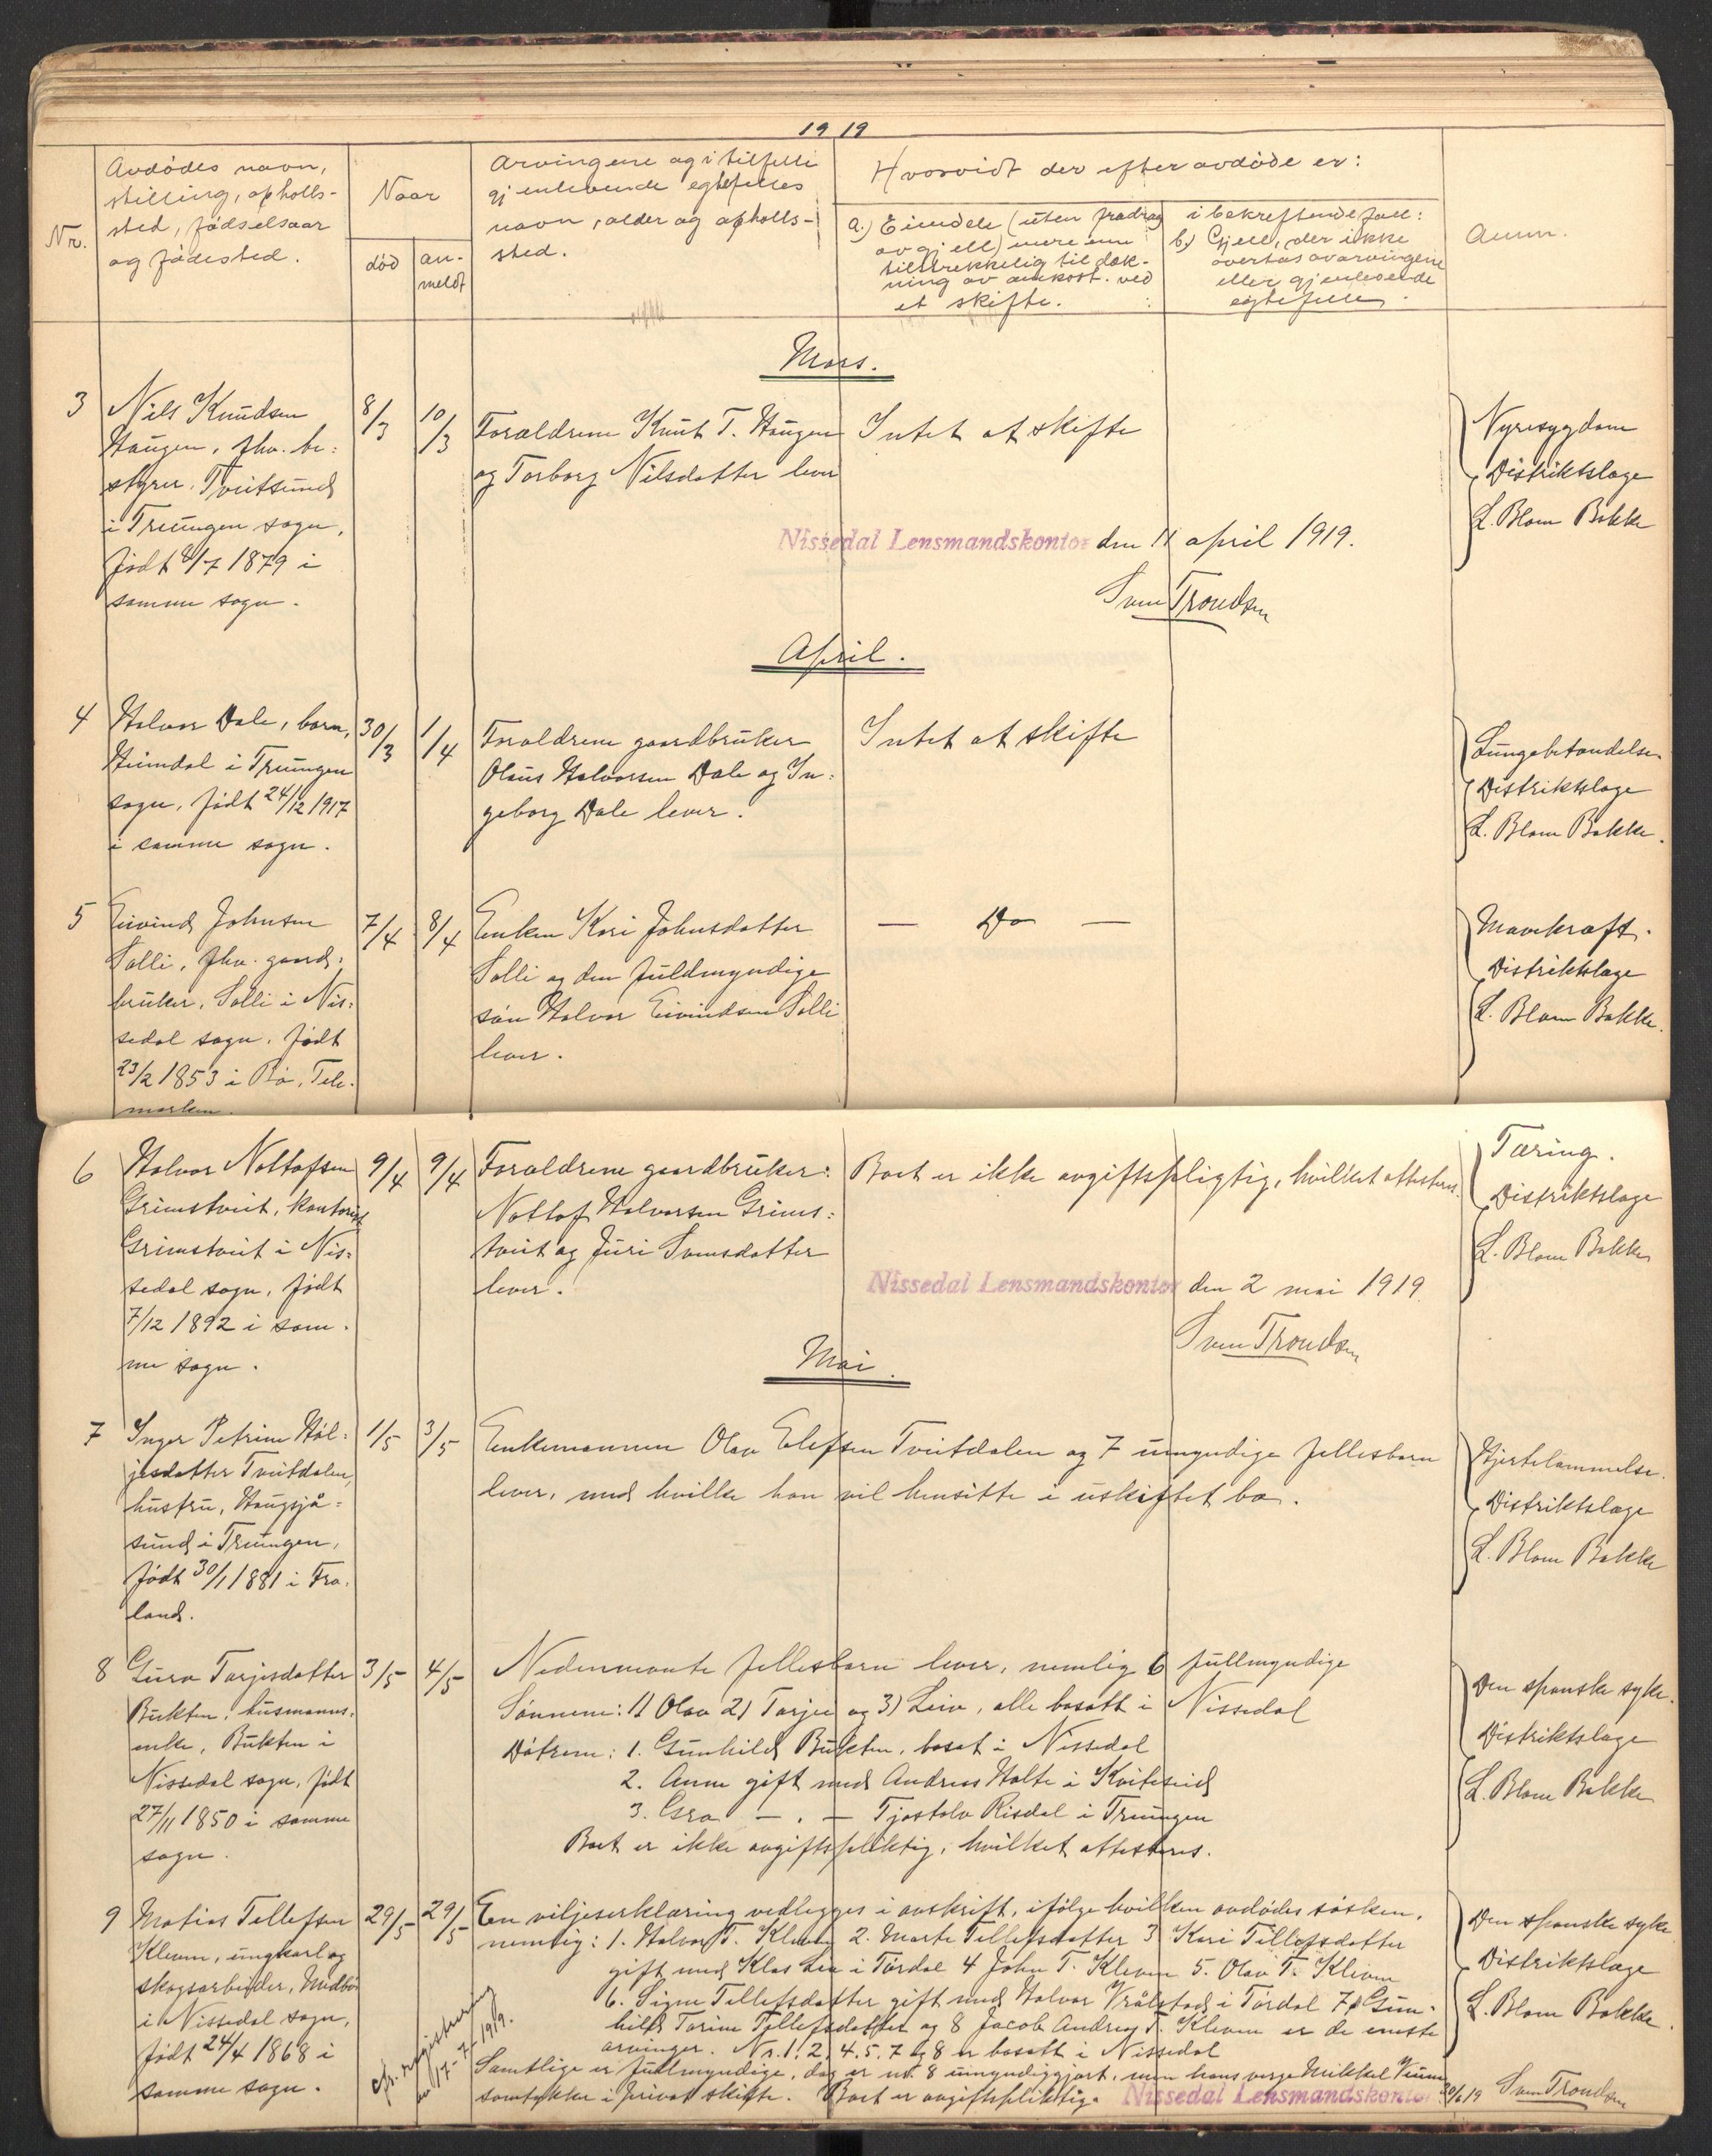 1919
Nr.
Avdödes navn,
stilling, opholls-
sted, födselsaar
og födested.
Naar
död
an-
meldt
Arvingene og i tilfelle
gjenlevende egtefelles
navn, alder og opholls-
sted.
Hvorvidt der efter avdöde er:
a.) Eiendele (uten fradrag
av gjell) mere enn
tilstrekkelig til dæk-
ning av omkost. ved
et skifte.
i bekreftende fall:
b.) Gjell, der ikke
overtas av arvingene
eller gjenlevende
egtefelle.
Anm.
Mars.
3
Nils Knudsen
Haugen, fhv. be-
styrer. Tveitsund
i Treungen sogn,
födt 4/7 1879 i
samme sogn.
8/3
10/3
Forældrene Knut T. Haugen
og Torborg Nilsdatter lever
Intet at skifte
Nyresygdom
Distriktslæge
L. Blom Bakke
Nissedal Lensmandskontor den 11 april 1919.
Sven Trondsen
April.
4
Halvor Dale, barn,
Heimdal i Treungen
sogn, födt 24/12 1917
i samme sogn.
30/3
1/4
Forældrene gaardbruker
Olaus Halvorsen Dale og In-
geborg Dale lever.
Intet at skifte
Lungebetændelse.
Distriktslæge
L. Blom Bakke.
5
Eivind Johnsen
Solli, fhv. gaard-
bruker, Solli i Nis-
sedal sogn. födt
23/2 1853 i Bö, Tele-
marken.
7/4
8/4
Enken Kari Johnsdatter
Solli og den fuldmyndige
sön Halvor Eivindsen Solli
lever.
— Do —
Mavekræft.
Distriktslæge
L. Blom Bakke.
6
Halvor Nottofsen
Grimstveit, kontorist
Grimstveit i Nis-
sedal sogn, födt
7/12 1892 i sam-
me sogn.
9/4
9/4
Forældrene gaardbruker:
Nottof Halvorsen Grims-
tveit og Juri Svensdatter
lever.
Boet er ikke avgiftspligtig, hvilket attesteres.
Tæring.
Distriktslæge
L. Blom Bakke
Nissedal Lensmandskontor den 2 mai 1919
Sven Trondsen
Mai.
7
Inger Petrine Höl-
jesdatter Tveitdalen,
hustru, Haugsjå-
sund i Treungen,
födt 30/1 1881 i Fro-
land.
1/5
3/5
Enkemannen Olav Elefsen Tveitdalen og 7 umyndige fellesbarn
lever, med hvilke han vil hensitte i uskiftet bo.
Hjertelammelse.
Distriktslæge
L. Blom Bakke
8
Guro Tarjesdatter
Bukten, husmanns-
enke, Bukten i
Nissedal sogn, födt
27/11 1850 i samme
sogn.
3/5
4/5
Nedennevnte fellesbarn lever, nemlig 6 fullmyndige
Sönnene: 1) Olav 2) Tarjei og 3) Leiv, alle bosatt i Nissedal
Dötrene: 1. Gunhild Bukten, bosat i Nissedal
2. Anne gift med Andreas Holte i Kviteseid
3. Gro — . — Tjostolv Risdal i Treungen
Boet er ikke avgiftspliktig, hvilket attesteres.
Den spanske syke.
Distriktslæge
L. Blom Bakke
9
Matias Tellefsen
Kleven, ungkarl og
skogsarbeider, Midbö
i Nissedal sogn,
födt 24/4 1868 i
samme sogn.
29/5
29/5
En viljeserklæring vedlegges i avskrift, ifölge hvilken avdödes sösken,
nemlig: 1. Halvor T. Kleven 2. Marte Tellefsdatter 3 Kari Tellefsdatter
gift med Klas i Tördal 4 John T. Kleven 5. Olav T. Kleven
6. Signe Tellefsdatter gift med Halvor Vrålstad i Tördal 7 Gun-
hild Torine Tellefsdatter og 8 Jacob Andreas T. Kleven er de eneste
arvinger. Nr. 1. 2. 4. 5. 7 og 8 er bosatt i Nissedal
Samtlige er fullmyndige, dog er nr. 8 umyndiggjort, men hans verge Mikkel Veum
samtykker i privat skifte. Boet er avgiftspliktig.
cfr. registrering
17-7-1919.
Den spanske syke
Distriktslæge
L. Blom Bakke.
Nissedal Lensmandskontor 30/6 19 Sven Trondsen